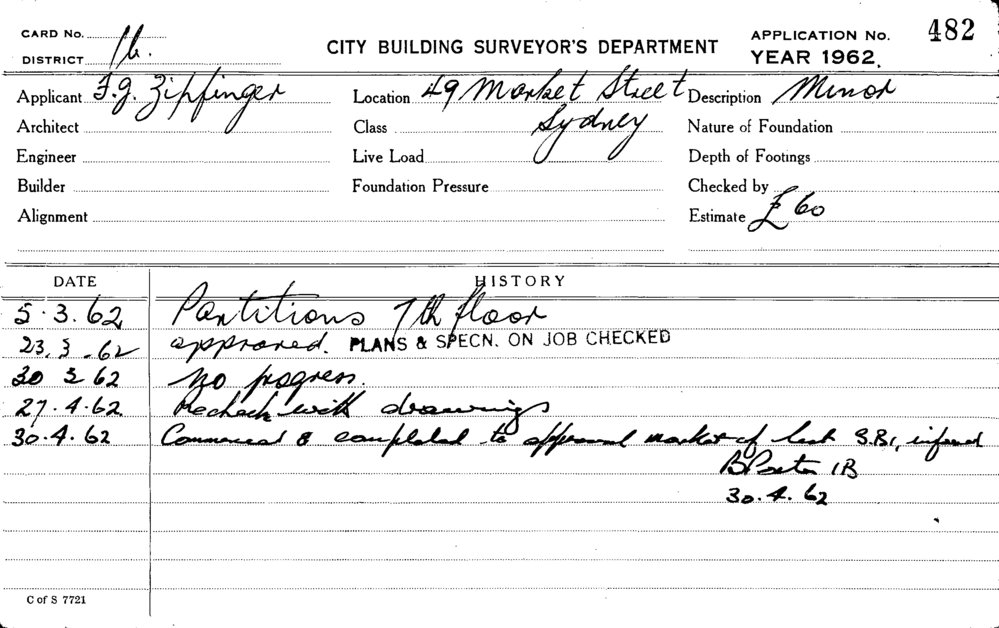 CARD No.
DISTRICT 1b.
CITY BUILDING SURVEYOR'S DEPARTMENT
APPLICATION No. 482
YEAR 1962.
Applicant F.J. Zipfinger
Location 49 Market Street
Description Minor
Architect
Class Sydney
Nature of Foundation
Engineer
Live Load
Depth of Footings
Builder
Foundation Pressure
Checked by
Alignment
Estimate £60
DATE HISTORY
5.3.62 Partitions 7th floor
23.3.62 approved. PLANS & SPECN. ON JOB CHECKED
30 3 62 No progress.
27.4.62 Recheck with drawings
30.4.62 Commenced & completed to approval S.B.
B 1B
30.4.62
C of S 7721